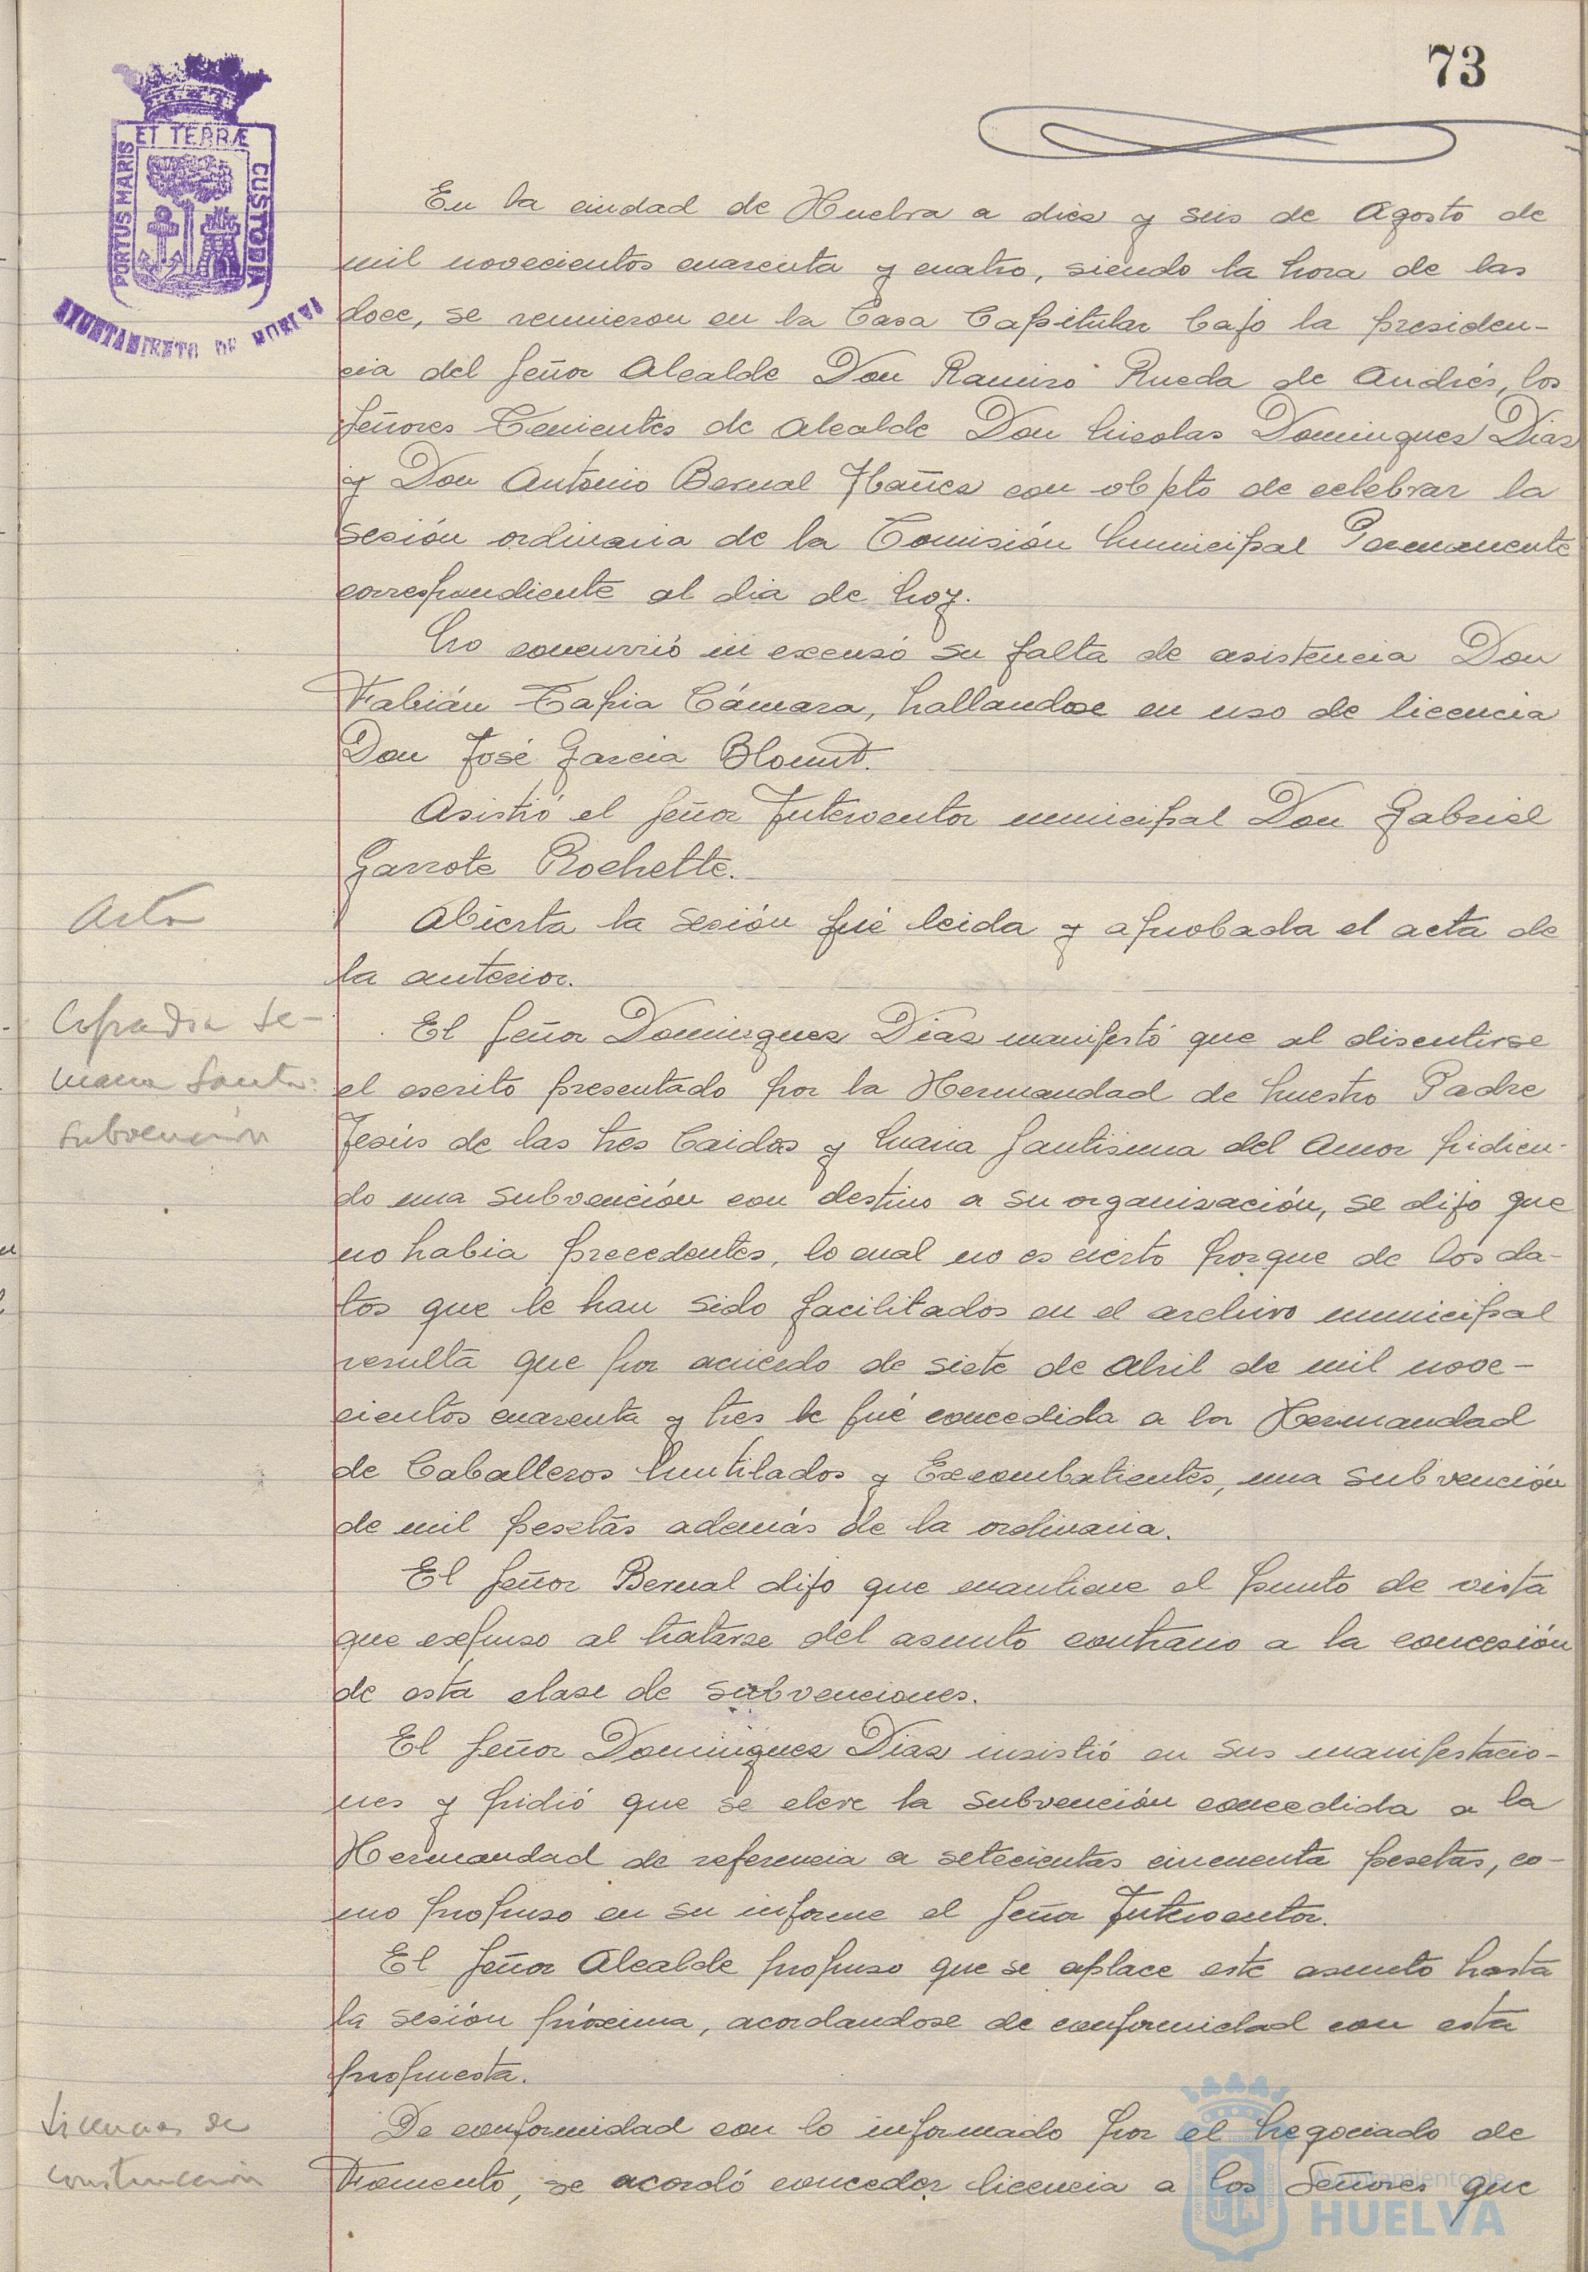 73
PORTUS MARIS
ET TERRÆ
CUSTODIA
AYUNTAMIENTO DE HUELVA
En la ciudad de Huelva a diez y seis de Agosto de
mil novecientos cuarenta y cuatro, siendo la hora de las
doce, se reunieron en la Casa Capitular bajo la presiden-
cia del Señor Alcalde Don Ramiro Rueda de Andrés, los
Señores Tenientes de Alcalde Don Nicolas Dominguez Diaz
y Don Antonio Bernal Ybañez con objeto de celebrar la
sesión ordinaria de la Comisión Municipal Permanente
correspondiente al dia de hoy.
No concurrió ni excusó su falta de asistencia Don
Fabián Tapia Cámara, hallandose en uso de licencia
Don José Garcia Blount.
Asistió el Señor Interventor municipal Don Gabriel
Garrote Rochette.
Acta
Abierta la sesión fué leida y aprobada el acta de
la anterior.
Cofradia Se-
mana Santa:
Subvención
El Señor Dominguez Diaz manifestó que al discutirse
el escrito presentado por la Hermandad de Nuestro Padre
Jesús de las tres Caidas y Maria Santisima del Amor pidien-
do una subvención con destino a su organización, se dijo que
no habia precedentes, lo cual no es cierto porque de los da-
tos que le han sido facilitados en el archivo municipal
resulta que por acuerdo de siete de Abril de mil nove-
cientos cuarenta y tres le fué concedida a la Hermandad
de Caballeros Mutilados y Excombatientes, una subvención
de mil pesetas además de la ordinaria.
El Señor Bernal dijo que mantiene el punto de vista
que expuso al tratarse del asunto contrario a la concesión
de esta clase de subvenciones.
El Señor Dominguez Diaz insistió en sus manifestacio-
nes y pidió que se eleve la subvención concedida a la
Hermandad de referencia a setecientas cincuenta pesetas, co-
mo propuso en su informe el Señor Interventor.
El Señor Alcalde propuso que se aplace este asunto hasta
la sesión próxima, acordandose de conformidad con esta
propuesta.
Licencias de
construcción
De conformidad con lo informado por el Negociado de
Fomento, se acordó conceder licencia a los Señores que
Ayuntamiento de
HUELVA